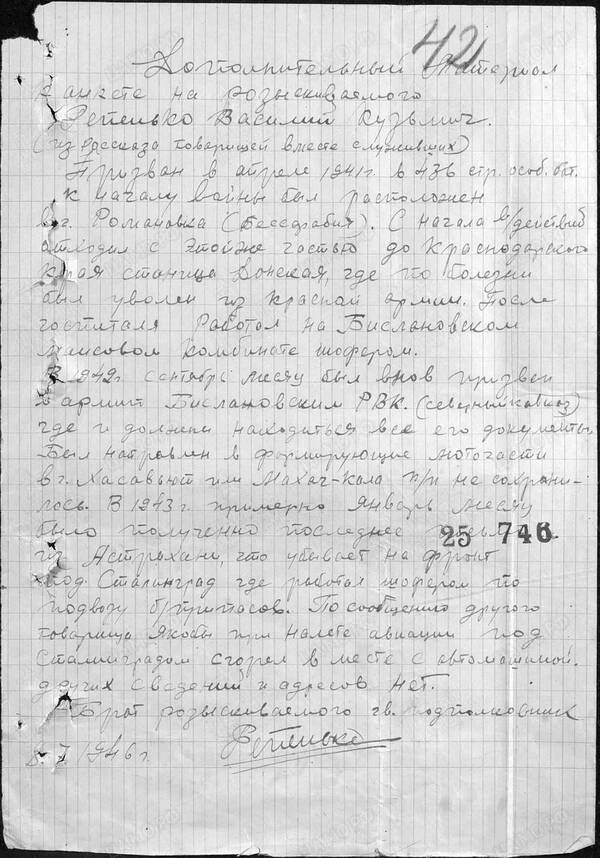 42
Дополнительный материал
к анкете на розыскиваемого
Репенько Василий Кузьмич.
(из рассказа товарищей вместе служивших)
Призван в апреле 1941г. в 436 стр. особ. бат.
К началу войны был расположен
в г. Романовка (Бессарабия). С начала в/действий
отходил с этой же частью до Краснодарского
края станица Донская, где по болезни
был уволен из красной армии. После
госпиталя работал на Бислановском
маисовом комбинате шофером.
В 1942г. сентябрь месяц был внов призвен
в армии Бислановским РВК. (северный кавказ)
где и должны находиться все его документы.
Был направлен в формирующие моточасти
в г. Хасавьюрт или Махач-кала п/п не сохрани-
лось. В 1943г. примерно январь месяц
было полученно последнее
25 746
из Астрахани, что убывает на фронт
под Сталинград где работал шофером по
подвозу б/припасов. По сообщению другого
товарища якобы при налете авиации под
Сталинградом сгорел в месте с автомашиной.
других сведений и адресов нет.
Брат розыскиваемого гв. подполковник
Репенько
1946г.